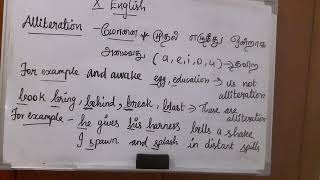 X English
Alliteration - மோனை & முதல் எழுத்து ஒன்றாக
அமைவது (a, e, i, o, u) → தவிர
For example and awake egg, education → is not
alliteration
book bring, behind, break, blast → These are
alliteration
For example - he gives his harness bells a shake
I spawn and splash in distant spills